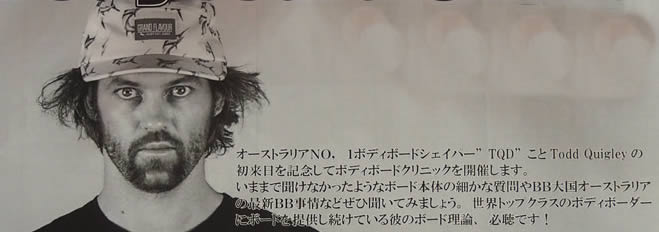 GRAND FLAVOUR
オーストラリアNO. 1ボディボードシェイパー”TQD”ことTodd Quigleyの
初来日を記念してボディボードクリニックを開催します。
いままで聞けなかったようなボード本体の細かな質問やBB大国オーストラリア
の最新BB事情などぜひ聞いてみましょう。世界トップクラスのボディボーダー
にボードを提供し続けている彼のボード理論、必聴です！